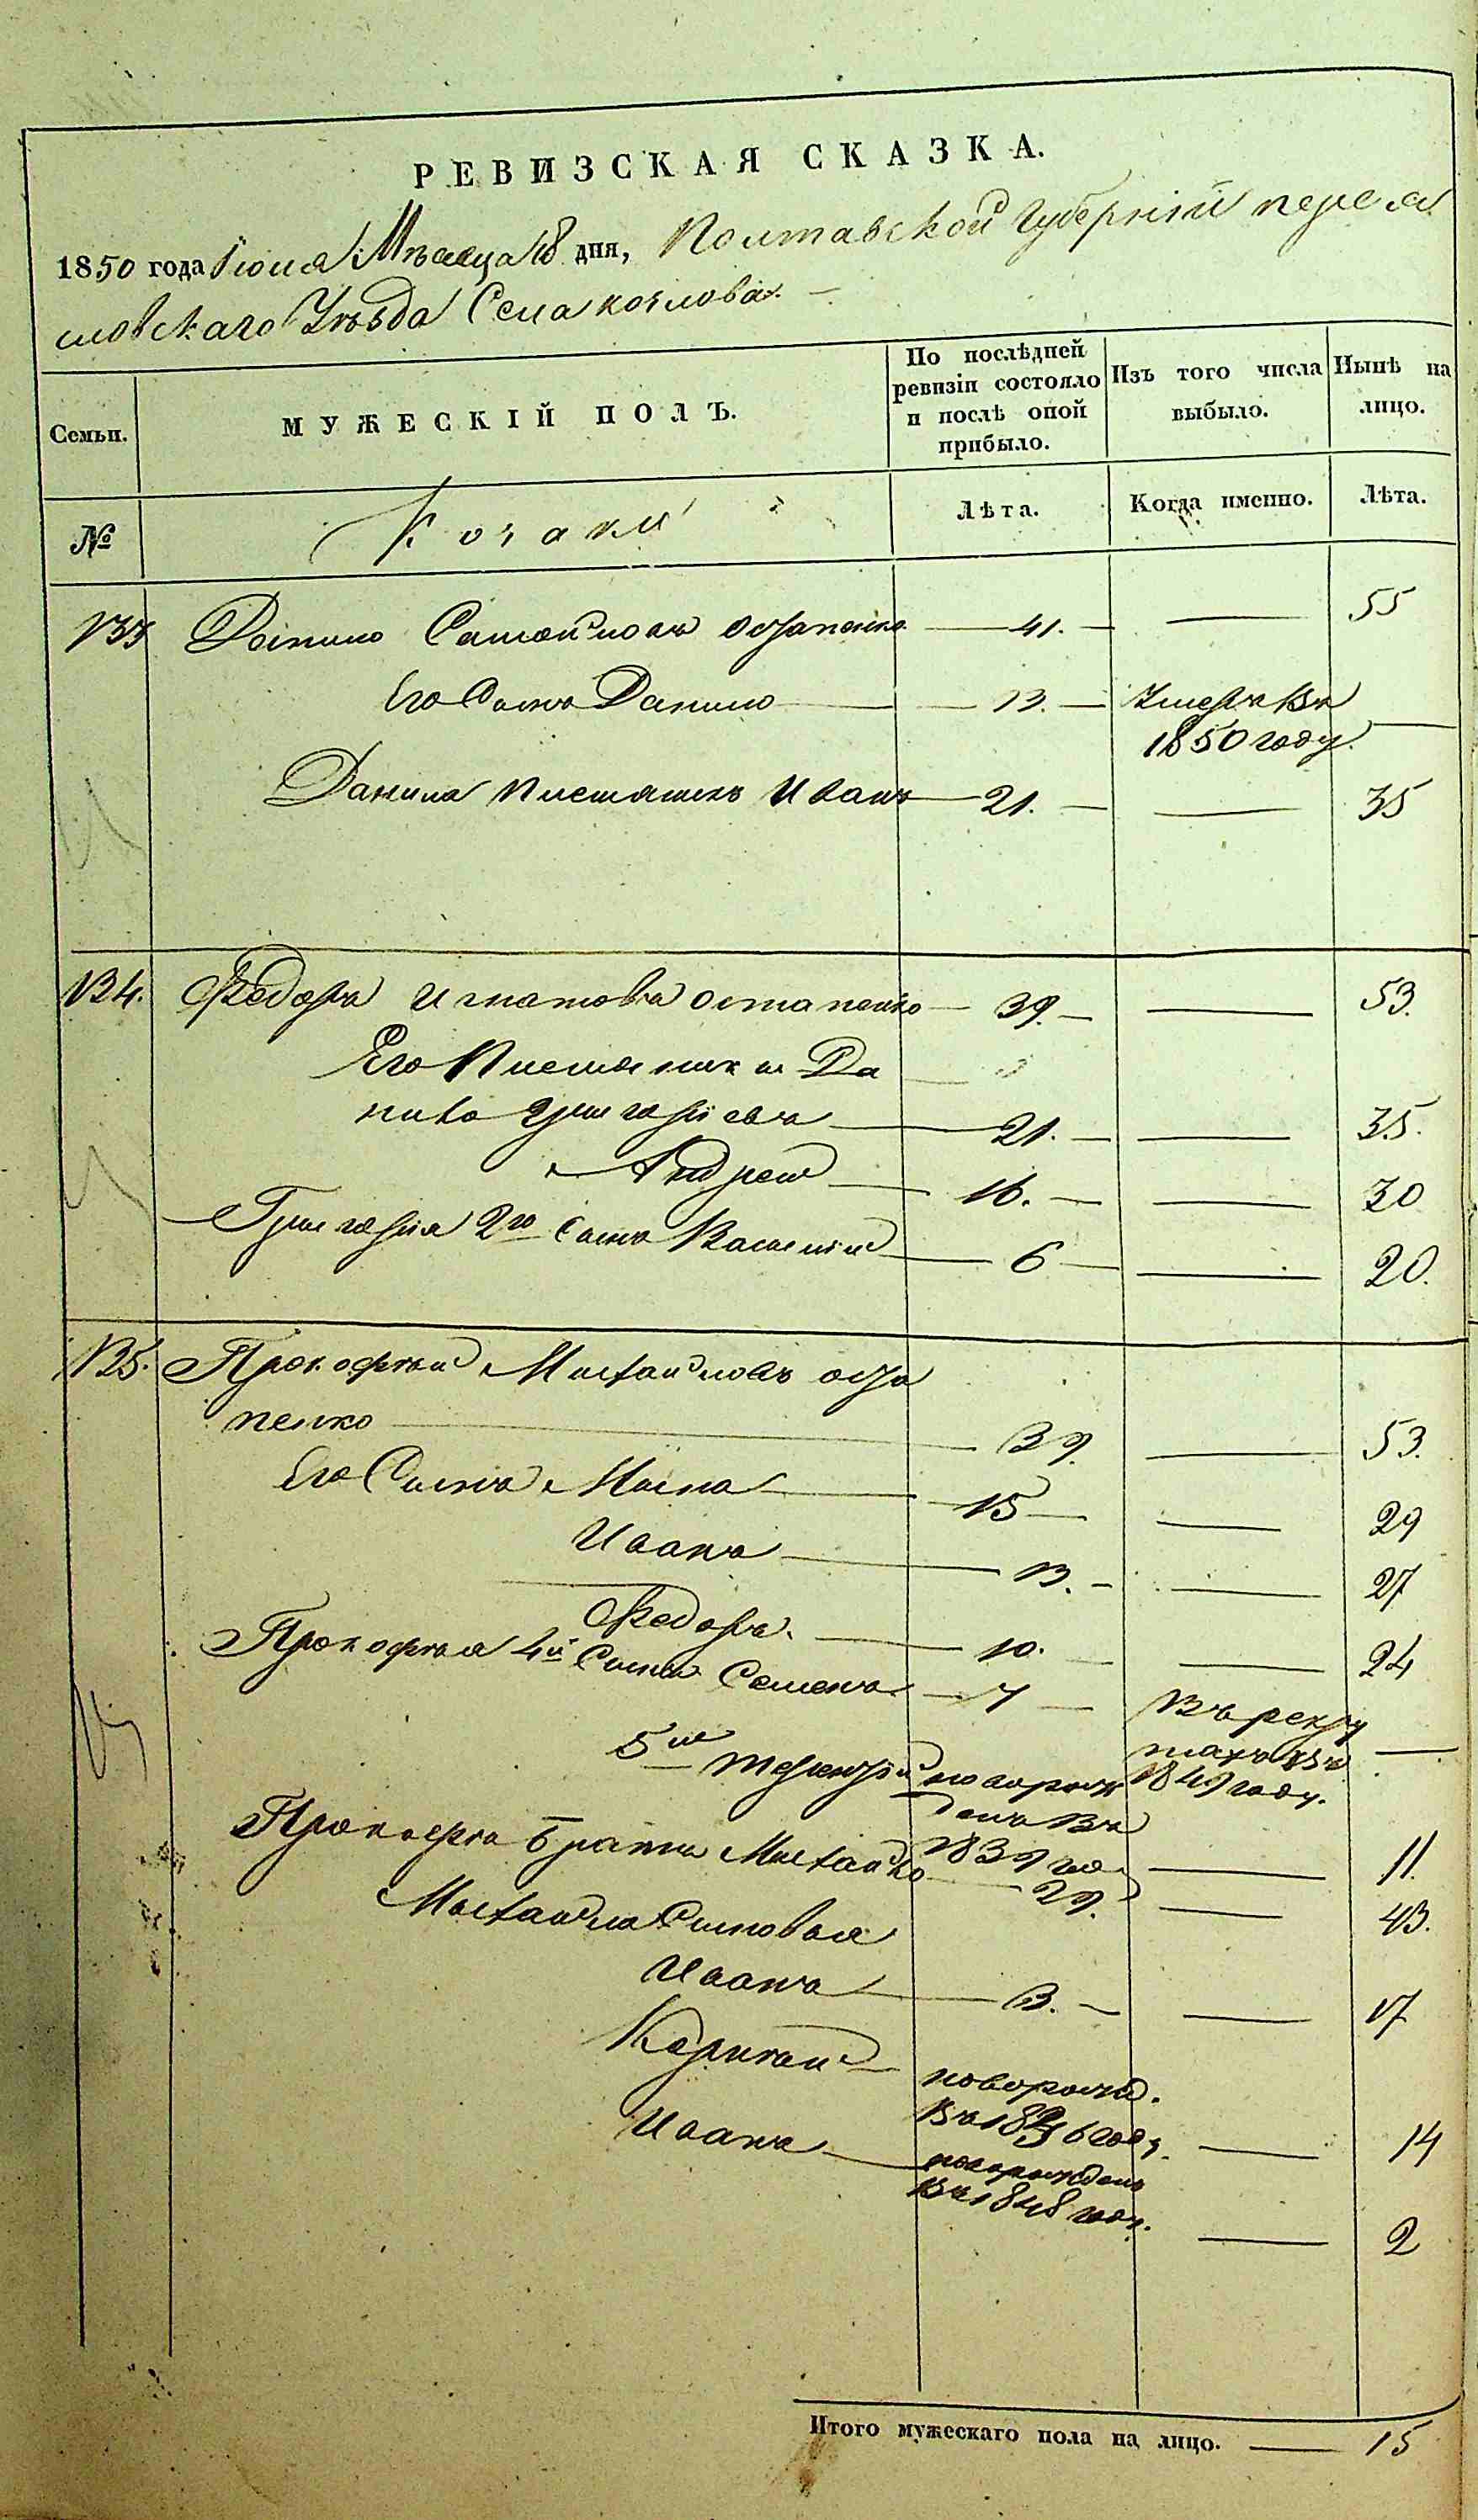 РЕВИЗСКАЯ СКАЗКА.
1850 года Іюня Мѣсяца 18 дня, Полтавской Губерніи переяс
ловскаго Уѣзда Села козлова.
Семьи.
МУЖЕСКІЙ ПОЛЪ.
По послѣдней ревизіи состояло и послѣ оной прибыло.
Изъ того числа выбыло.
Нынѣ на лицо.
№
Козаки
Лѣта.
Когда именно.
Лѣта.
Самойловъ остапенко 41. 55
Его Сынъ Данило 13. Умеръ Въ
1850 году.
Данила племяникъ Иванъ 21. 35
134. Федоръ Игнатовъ остапенко 39. 53.
Его Племяники Да
нило Григорьевъ 21. 35.
Андрей 16. 30
Григорія 2го Сынъ Василій 6 20.
135. Прокофій Михайловъ оста
пенко 39. 53.
Его Сынъ 15 29
Иванъ 13. 27
Федоръ. 10. 24
Прокофія 4й Сынъ Семенъ 7 Въ рекру
тахъ Въ
1849 году.
5й Терентій новорож
денъ Въ
1839 год 11.
Прокофія братъ Михайло 29. 43.
Михайла Сыновья
Иванъ 3. 17
новорожд.
Въ 1836 году. 14
Иванъ новорожденъ
Въ 1848 году. 2
Итого мужескаго пола на лицо. 15